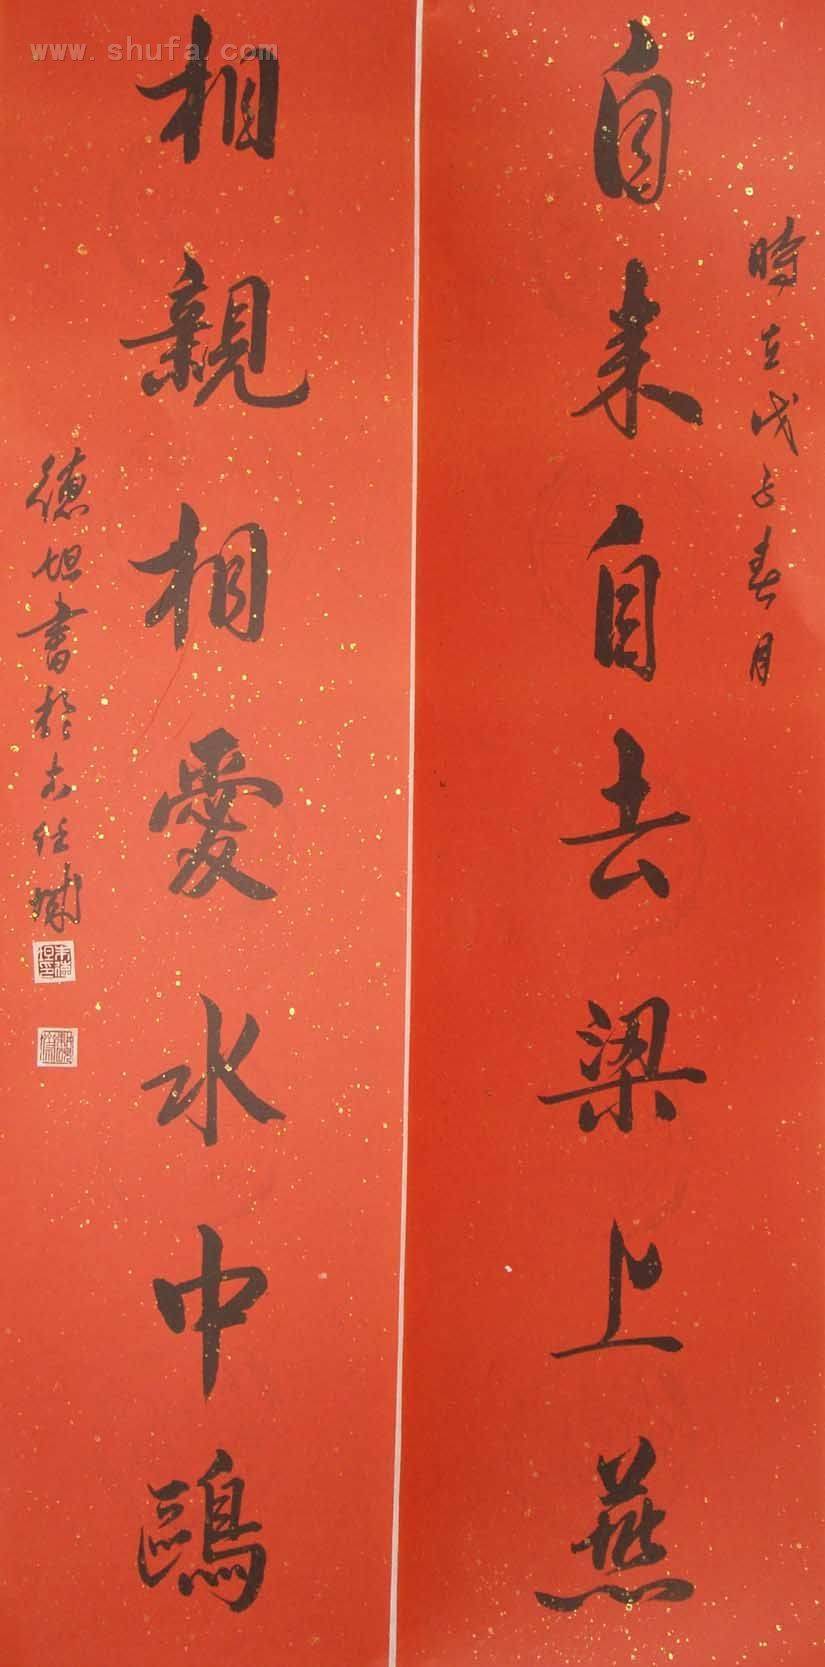 時在戊子春月
自来自去梁上燕
相親相愛水中鷗
德坦書於古任城
www.shufa.com